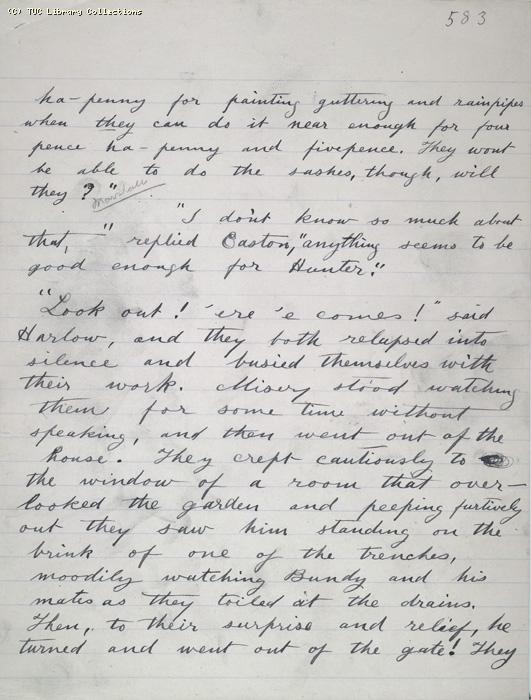 (C) TUC Library Collections
583
ha-penny for painting guttering and rainpipes
when they can do it near enough for four
pence ha-penny and fivepence. They wont
be able to do the sashes, though, will
they?"
"I don't know so much about
that," replied Easton, "anything seems to be
good enough for Hunter."
"Look out! 'ere 'e comes!" said
Harlow, and they both relapsed into
silence and busied themselves with
their work. Misery stood watching
them for some time without
speaking, and then went out of the
house. They crept cautiously to
the window of a room that over-
looked the garden and peeping furtively
out they saw him standing on the
brink of one of the trenches,
moodily watching Bundy and his
mates as they toiled at the drains.
Then, to their surprise and relief, he
turned and went out of the gate! They